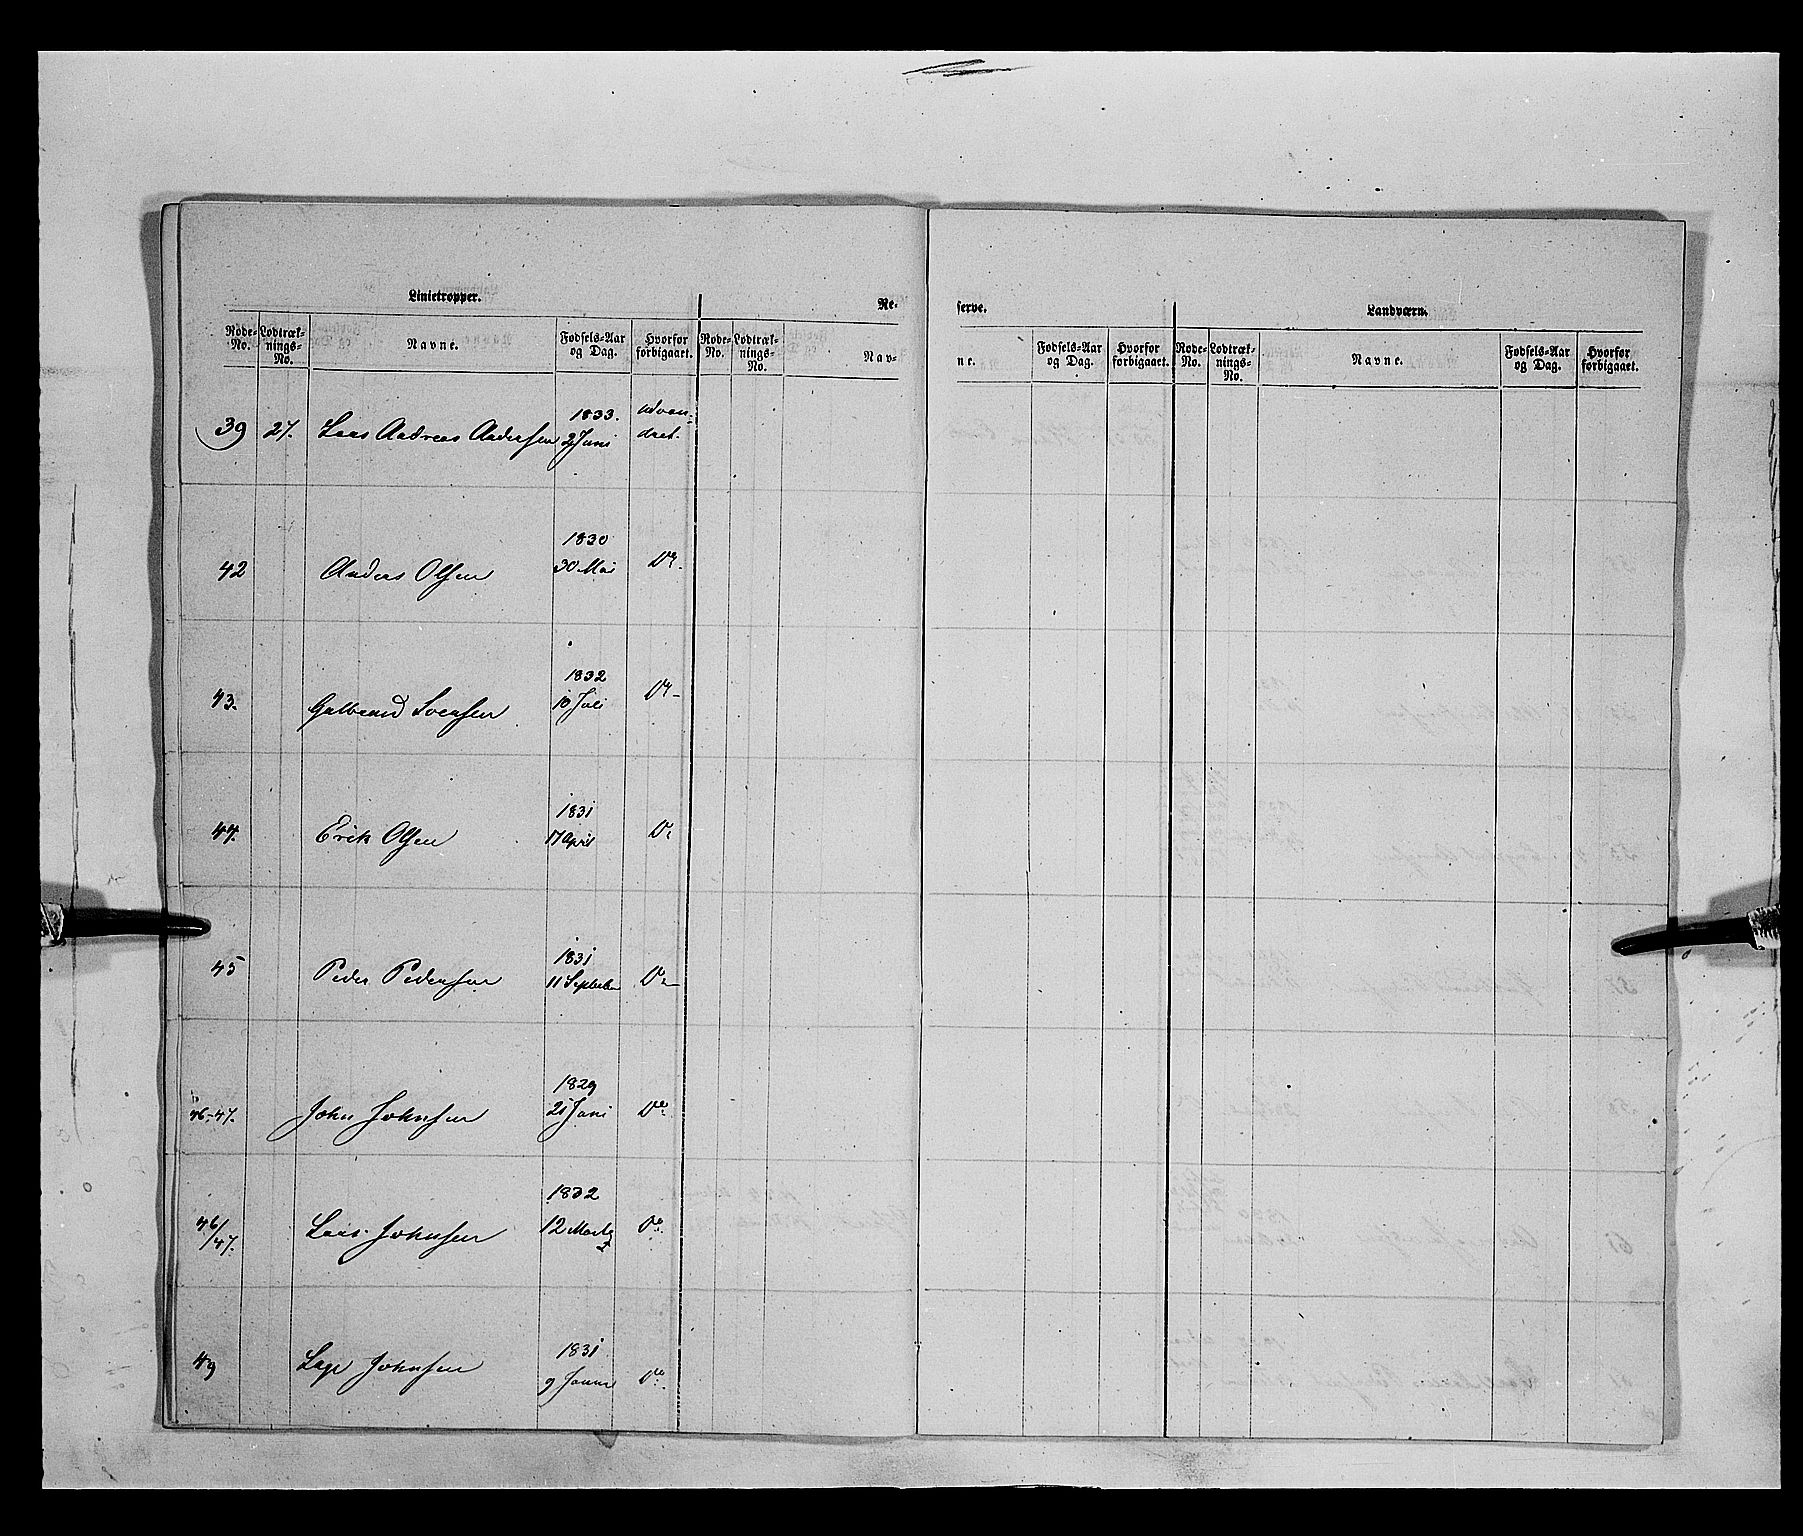 Linietropper.
Re-
serve.
Landværn.
Rode-No. Lodtræk-nings-No. Navne. Fødsels-Aar og Dag. Hvorfor forbigaaet. Rode-No. Lodtræk-nings-No. Nav-
ne. Fødsels-Aar og Dag. Hvorfor forbigaaet. Rode-No. Lodtræk-nings-No. Navne. Fødsels-Aar og Dag. Hvorfor forbigaaet.
1833. udvan-
39 27. Lars Andreas Andersen 2 Juni dret.
1830
42 Anders Olsen 30 Mai Do.
1832
43. Gulbrand Svensen 10 Juli Do
1831
44. Erik Olsen 17 April Do
1831
45 Peder Pedersen 11 September Do
1829
46-47. John Johnsen 21 Juni Do.
1832
46/47. Lars Johnsen 12 Marts Do.
1831
49 Johnsen 9 Do.